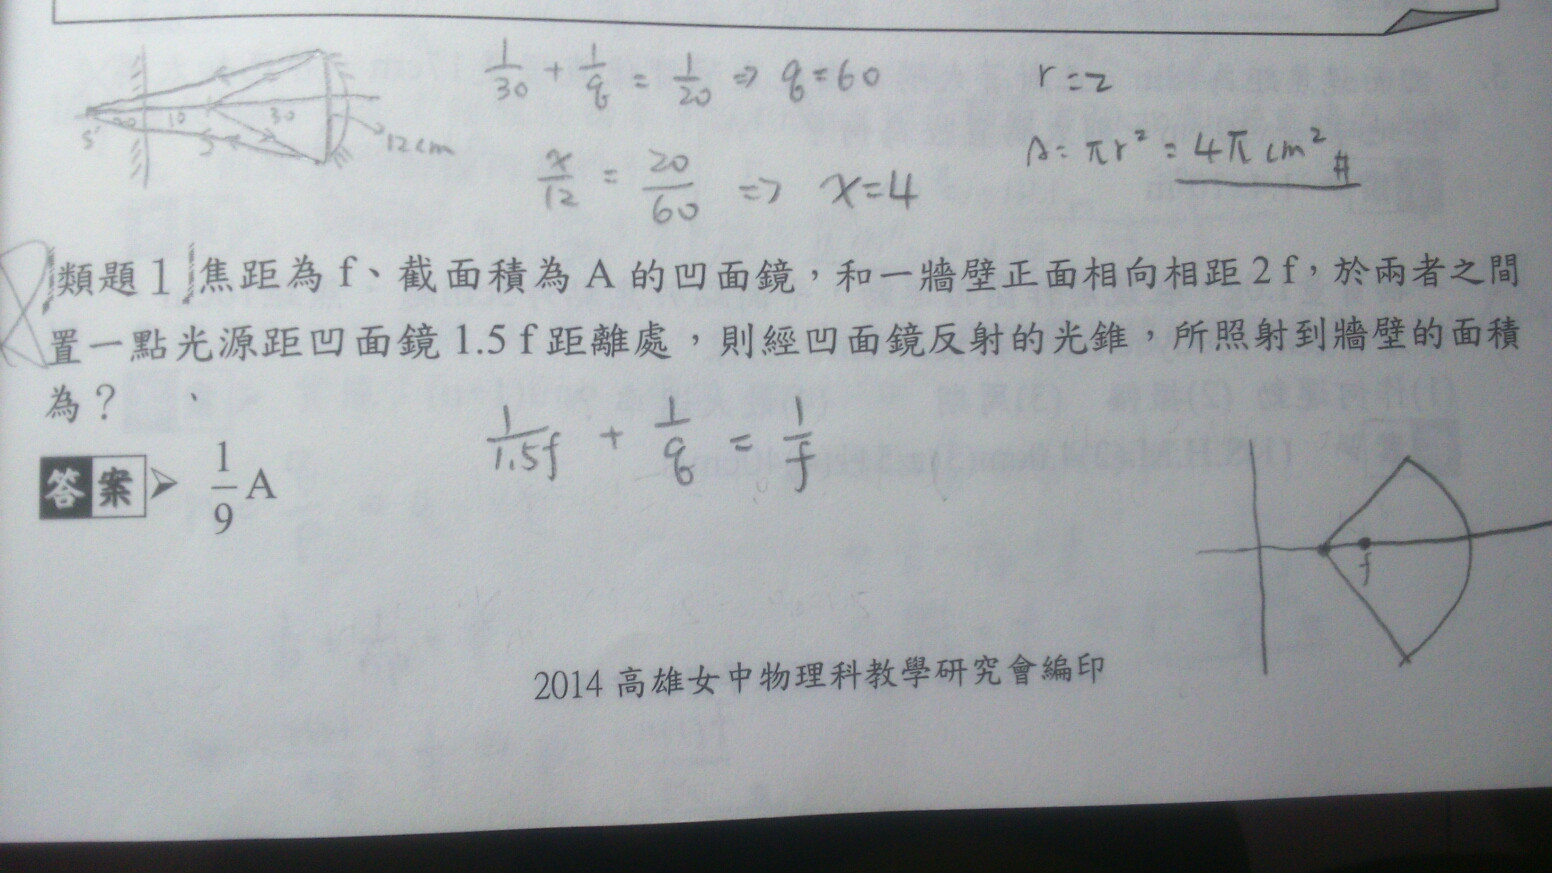 1/30 + 1/q = 1/20 => q = 60
r = 2
x/12 = 20/60 => x = 4
A = πr² = 4π cm² #
S' 20 10 S 30 12cm
類題1 焦距為 f、截面積為 A 的凹面鏡，和一牆壁正面相向相距 2 f，於兩者之間
置一點光源距凹面鏡 1.5 f 距離處，則經凹面鏡反射的光錐，所照射到牆壁的面積
為？
1/1.5f + 1/q = 1/f
答案 1/9 A
f
2014 高雄女中物理科教學研究會編印